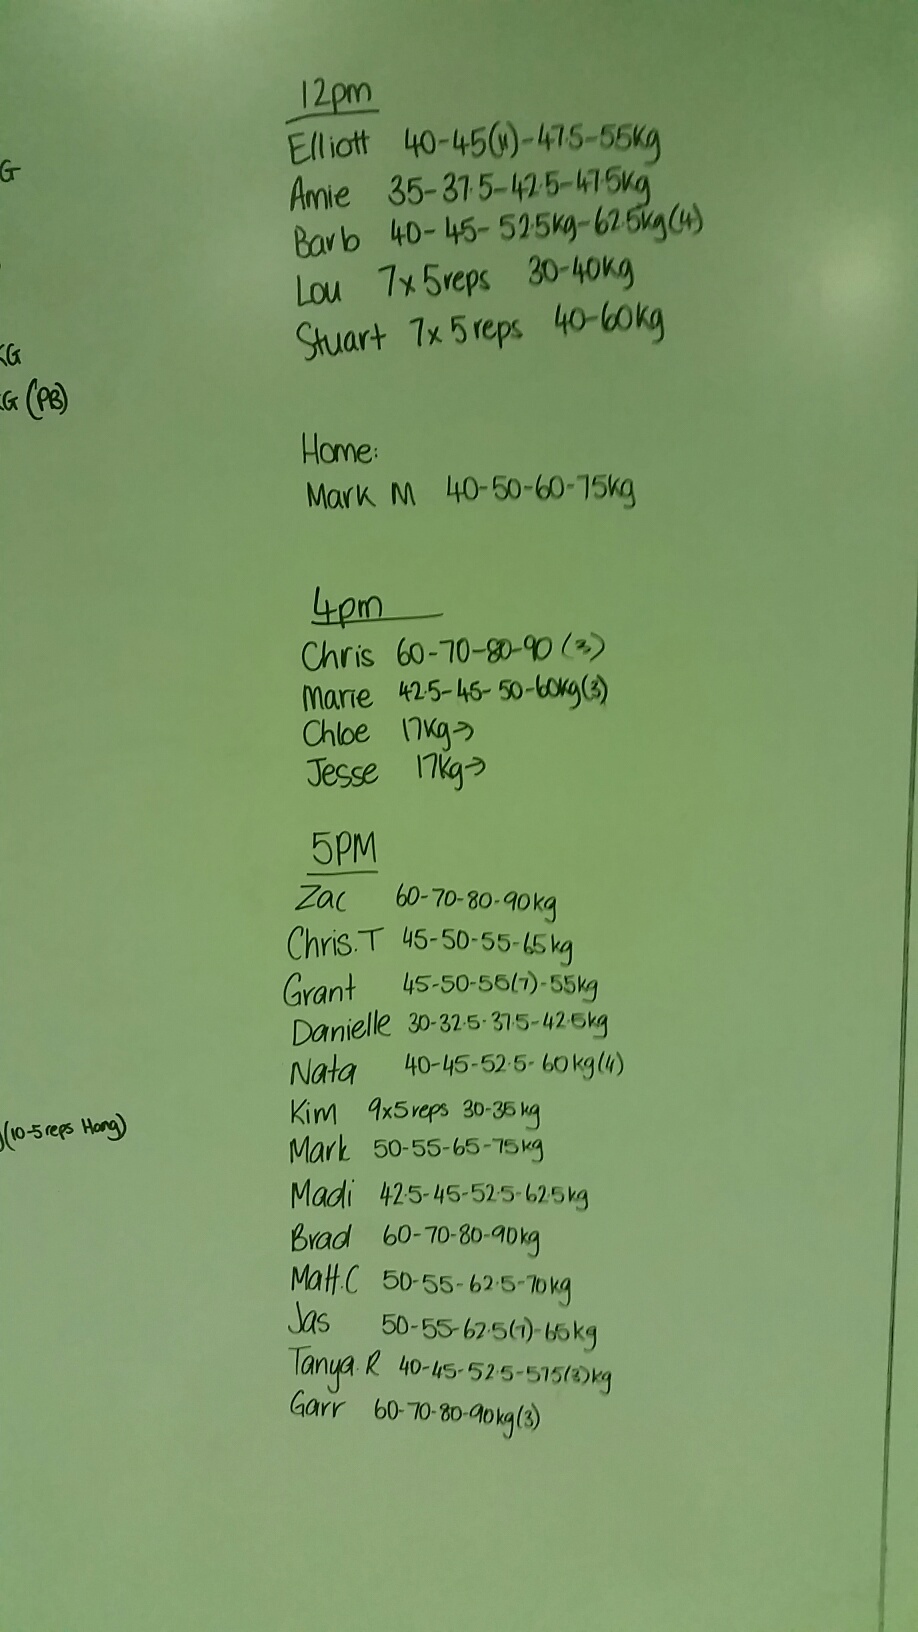 G
KG
G (PB)
(10-5 reps Hang)
12pm
Elliott 40-45(4)-47.5-55Kg
Amie 35-37.5-42.5-47.5Kg
Barb 40-45-52.5Kg-62.5Kg(4)
Lou 7x5reps 30-40Kg
Stuart 7x5reps 40-60Kg
Home:
Mark M 40-50-60-75Kg
4pm
Chris 60-70-80-90 (3)
Marie 42.5-45-50-60Kg(3)
Chloe 17Kg→
Jesse 17Kg→
5PM
Zac 60-70-80-90kg
Chris.T 45-50-55-65kg
Grant 45-50-55(7)-55kg
Danielle 30-32.5-37.5-42.5kg
Nata 40-45-52.5-60kg(4)
Kim 9x5reps 30-35kg
Mark 50-55-65-75kg
Madi 42.5-45-52.5-62.5kg
Brad 60-70-80-90kg
Matt.C 50-55-62.5-70kg
Jas 50-55-62.5(7)-65kg
Tanya.R 40-45-52.5-57.5(3)kg
Garr 60-70-80-90kg(3)